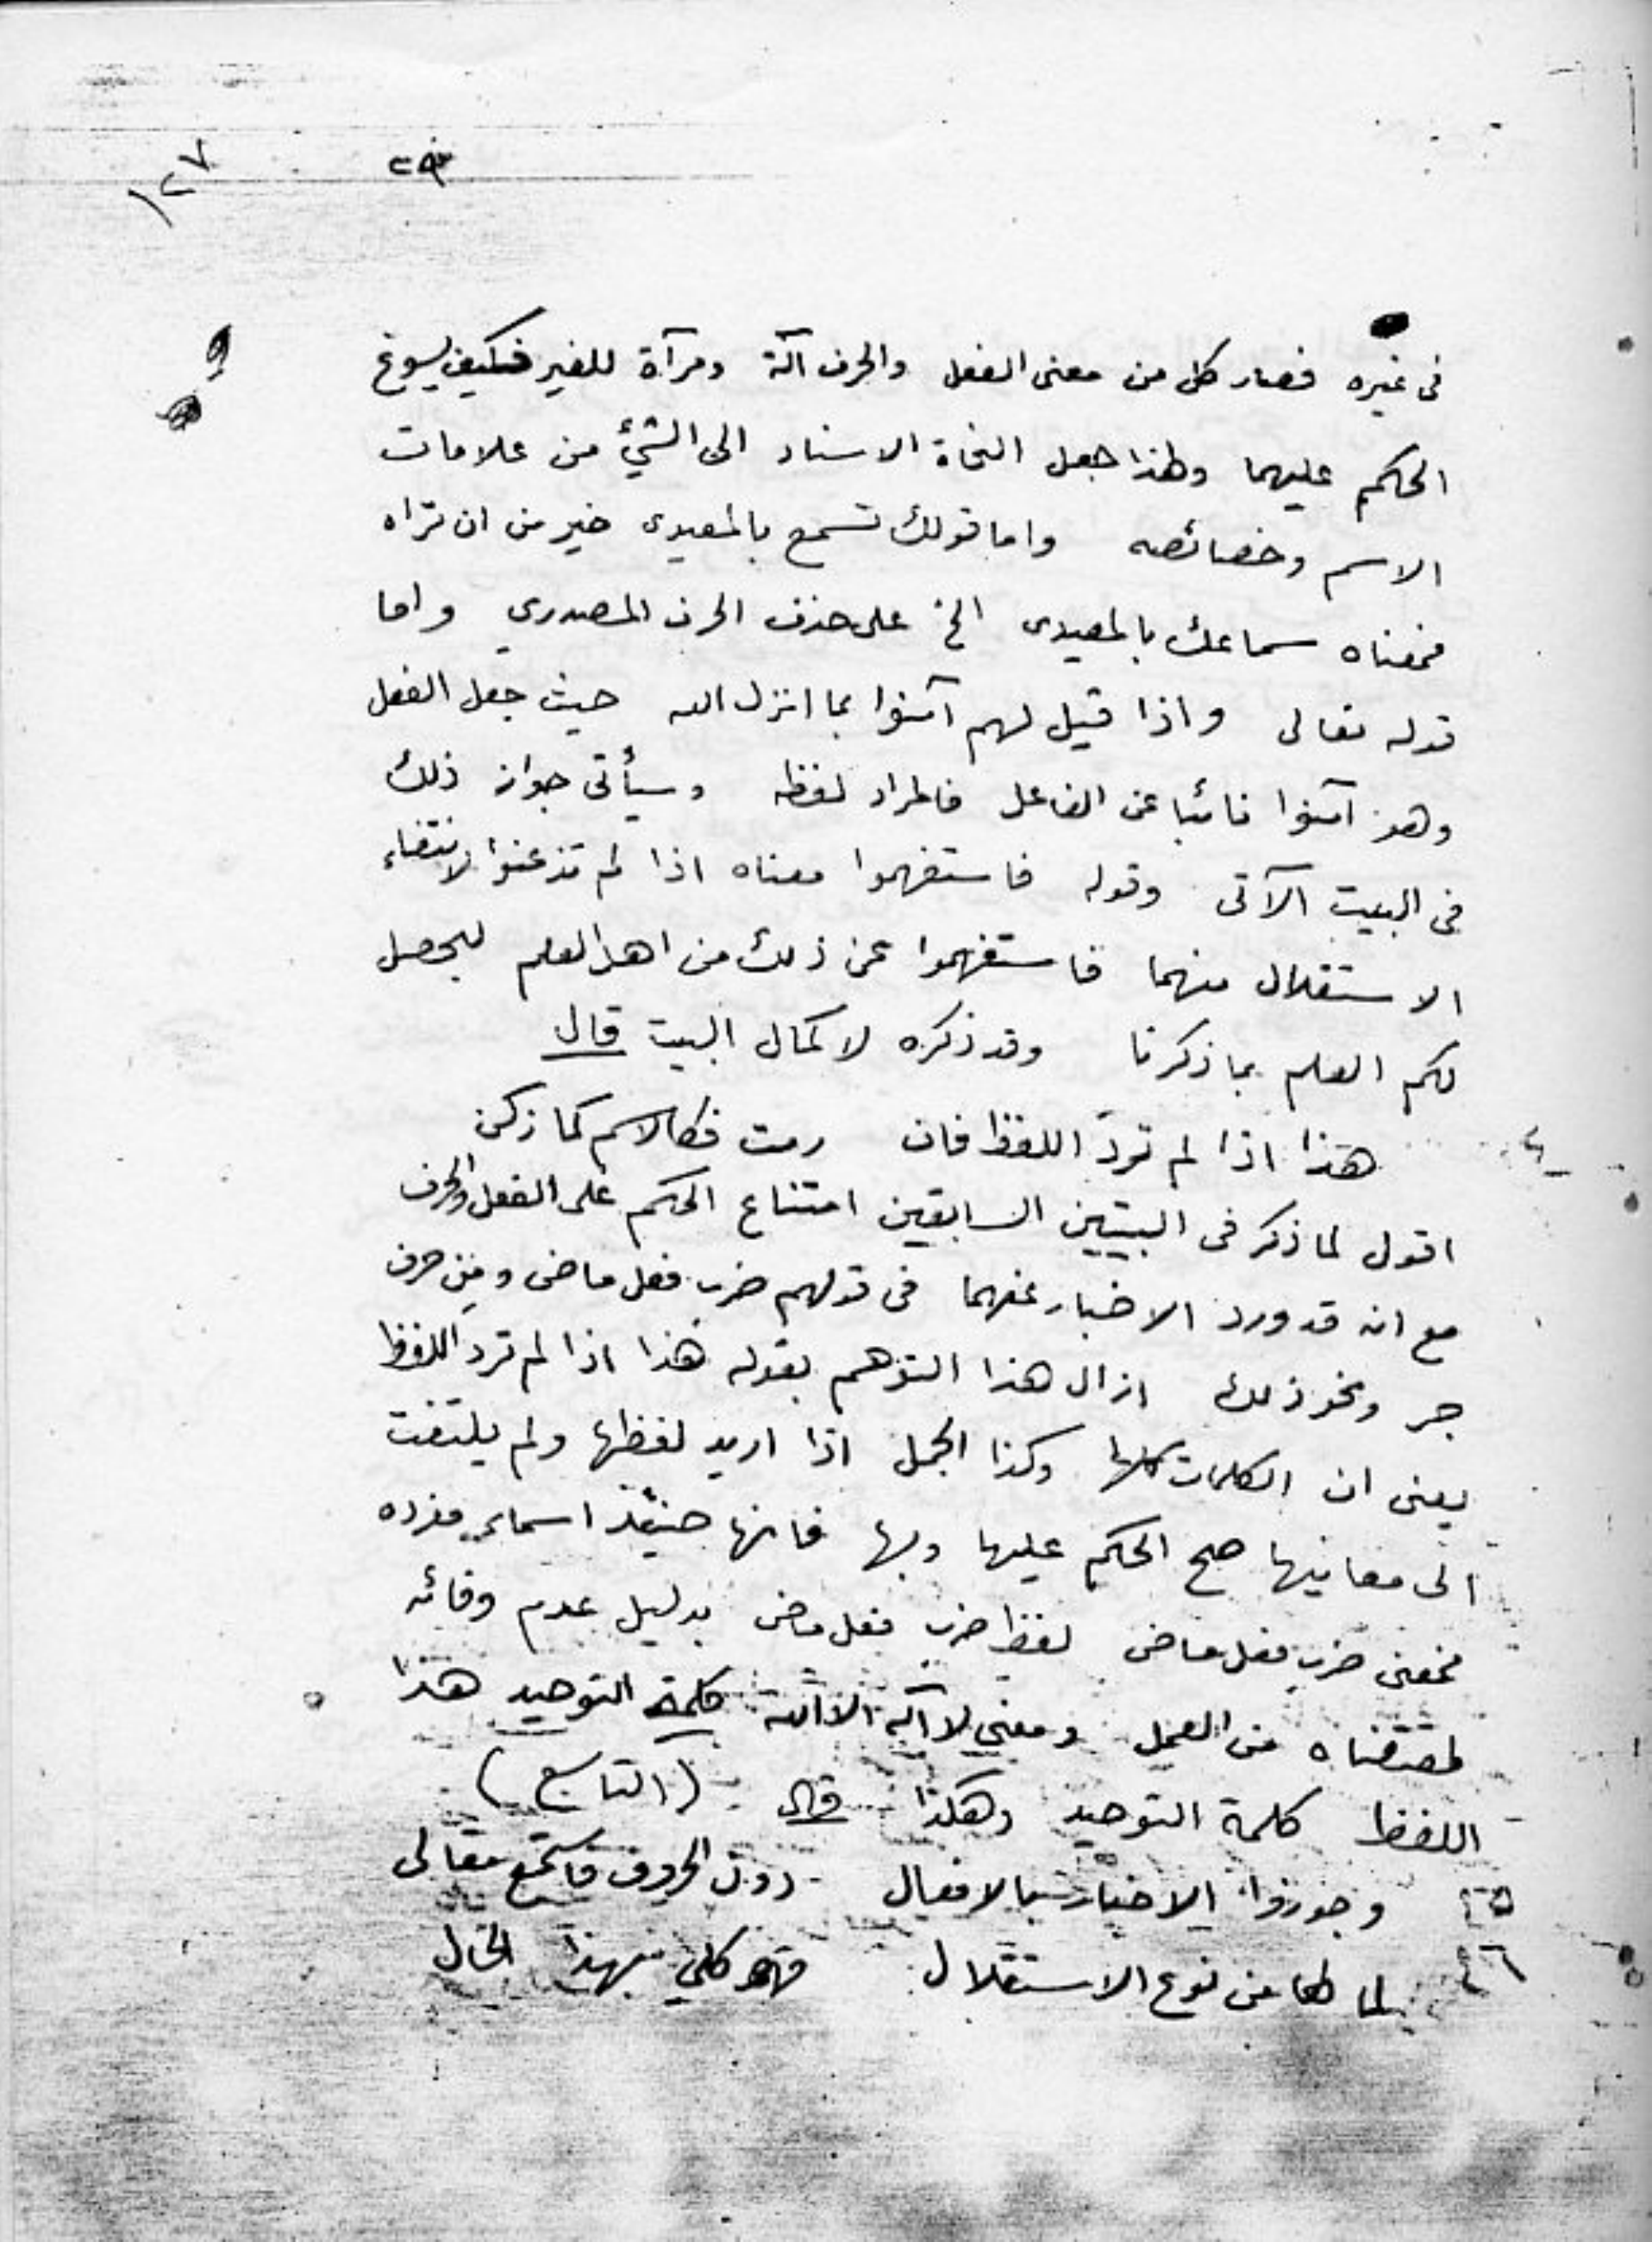 ١٢٧
فى غيره فصار كل من معنى الفعل والحرف آلة ومرآة للغير فكيف يسوغ
الحكم عليهما ولهذا جعل النحاة الاسناد الى الشيء من علامات
الاسم وخصائصه واما قولك تسمع بالمعيدى خير من ان تراه
فمعناه سماعك بالمعيدى الخ على حذف الحرف المصدري واما
قوله تعالى واذا قيل لهم آمنوا بما انزل الله حيث جعل الفعل
وهو آمنوا نائبا عن الفاعل فالمراد لفظه وسيأتى جواز ذلك
فى البيت الآتى وقوله فاستفهموا معناه اذا لم تذعنوا لانتفاء
الاستقلال منهما فاستفهموا عن ذلك من اهل العلم ليحصل
لكم العلم بما ذكرنا وقد ذكره لاكمال البيت قال
هذا اذا لم ترد اللفظ فان رمت فكالاسم كما زكن
اقول لما ذكر فى البيتين السابقين امتناع الحكم على الفعل والحرف
مع انه قد ورد الاخبار عنهما فى قولهم ضرب فعل ماضى ومن حرف
جر ونحو ذلك ازال هذا التوهم بقوله هذا اذا لم ترد اللفظ
يعنى ان الكلمات كلها وكذا الجمل اذا اريد لفظها ولم يلتفت
الى معانيها صح الحكم عليها وبها فانها حينئذ اسماء مفرده
فمعنى ضرب فعل ماضى لفظ ضرب فعل ماض بدليل عدم وفائه
لمقتضاه من العمل ومعنى لا اله الا الله كلمة التوحيد هذا
اللفظ كلمة التوحيد وهكذا قال (التاسع)
٢٥ وجوزوا الاخبار بالافعال دون الحروف فاستمع مقالى
٢٦ لما لها من نوع الاستقلال فهو كلي بهذا الحال